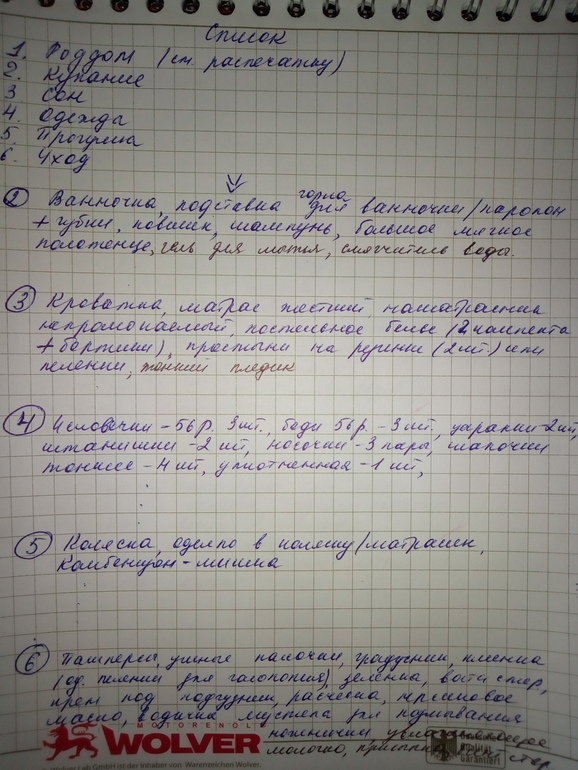 Список
1. Роддом (см. распечатку)
2. Купание
3 Сон
4. Одежда
5 Прогулка
6. Уход
② Ванночка, подставка горка для ванночки/паролон
+ губки, ковшик, шампунь, большое мягкое
полотенце, гель для мытья, смягчитель воды.
③ Кроватка, матрас жесткий, наматрасник
непромокаемый, постельное белье (2 комплекта
+ бортики), простыни на резинке (2шт.) или
пеленки, тонкий пледик
④ Человечки - 56р. 3шт., боди 56р. - 3 шт, царапки - 2 шт,
штанишки - 2 шт, носочки - 3 пары, шапочки
тонкие - 4 шт, уплотненная - 1 шт,
⑤ Коляска, одеяло в коляску/матрасик,
Комбенизон - мишка
⑥ Памперсы, ушные палочки, градусник, клеенка
(од. пеленки для газопоп), зеленка, вата стер,
крем под подгузник, расческа, персиковое
масло, водичка мустела для подмывания
ножнички, увлажняющее
молочко, присыпка, стер
MOTORENOEL
WOLVER
Wolver Lab GmbH ist der Inhaber von Warenzeichen Wolver.
Qualität
Garantiert